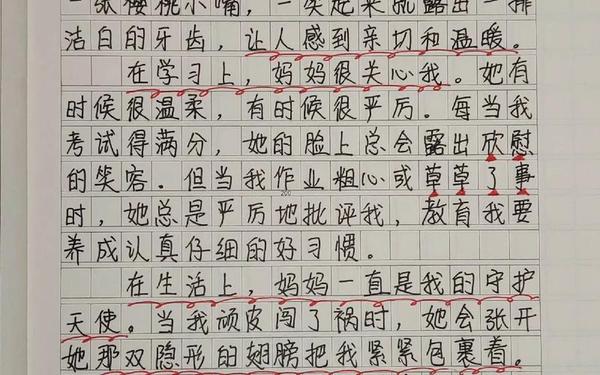 一张樱桃小嘴，一笑起来就露出一排
洁白的牙齿，让人感到亲切和温暖。
在学习上，妈妈很关心我。她有
时候很温柔，有时候很严厉。每当我
考试得满分，她的脸上总会露出欣慰
的笑容。但当我作业粗心或草草了事
200
时，她总是严厉地批评我，教育我要
养成认真仔细的好习惯。
在生活上，妈妈一直是我的守护
天使。当我顽皮闯了祸时，她会张开
她那双隐形的翅膀把我紧紧包裹着。